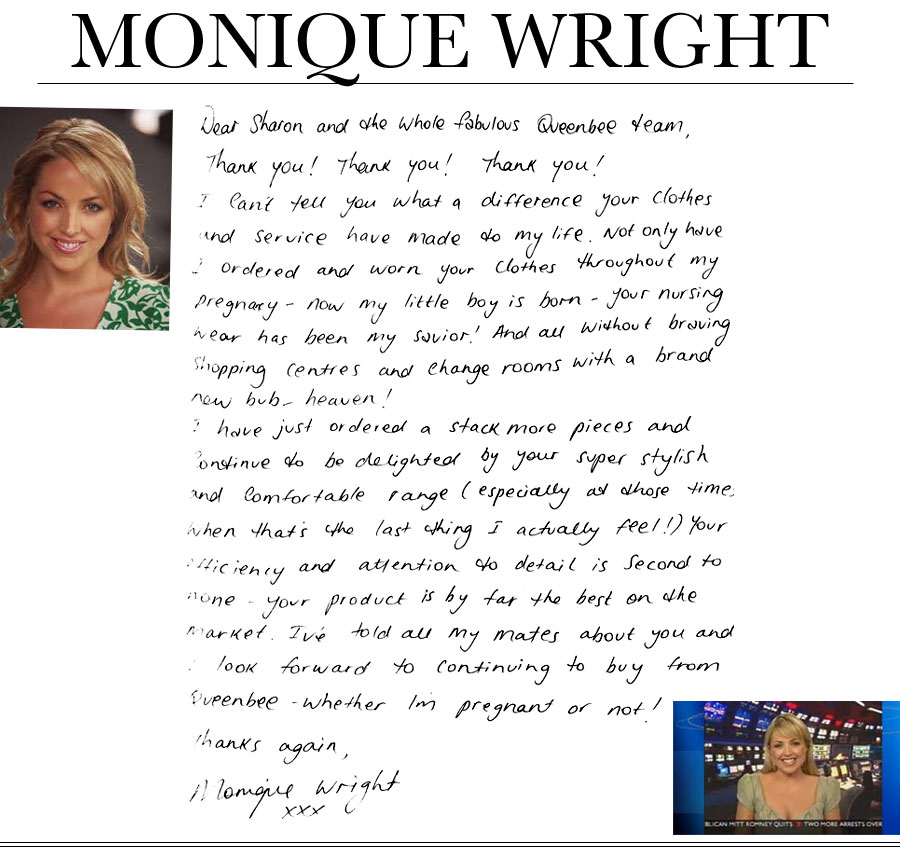 MONIQUE WRIGHT
Dear Sharon and the whole fabulous Queenbee team,
Thank you! Thank you! Thank you!
I can't tell you what a difference your clothes
and service have made to my life. Not only have
I ordered and worn your clothes throughout my
pregnacy - now my little boy is born - your nursing
wear has been my savior! And all without braving
shopping centres and change rooms with a brand
new bub - heaven!
I have just ordered a stack more pieces and
continue to be delighted by your super stylish
and comfortable range (especially at those times
when that's the last thing I actually feel!) Your
efficiency and attention to detail is second to
none - your product is by far the best on the
market. I've told all my mates about you and
I look forward to continuing to buy from
Queenbee - whether I'm pregnant or not!
Thanks again,
Monique Wright
xxx
BLICAN MITT ROMNEY QUITS > TWO MORE ARRESTS OVER